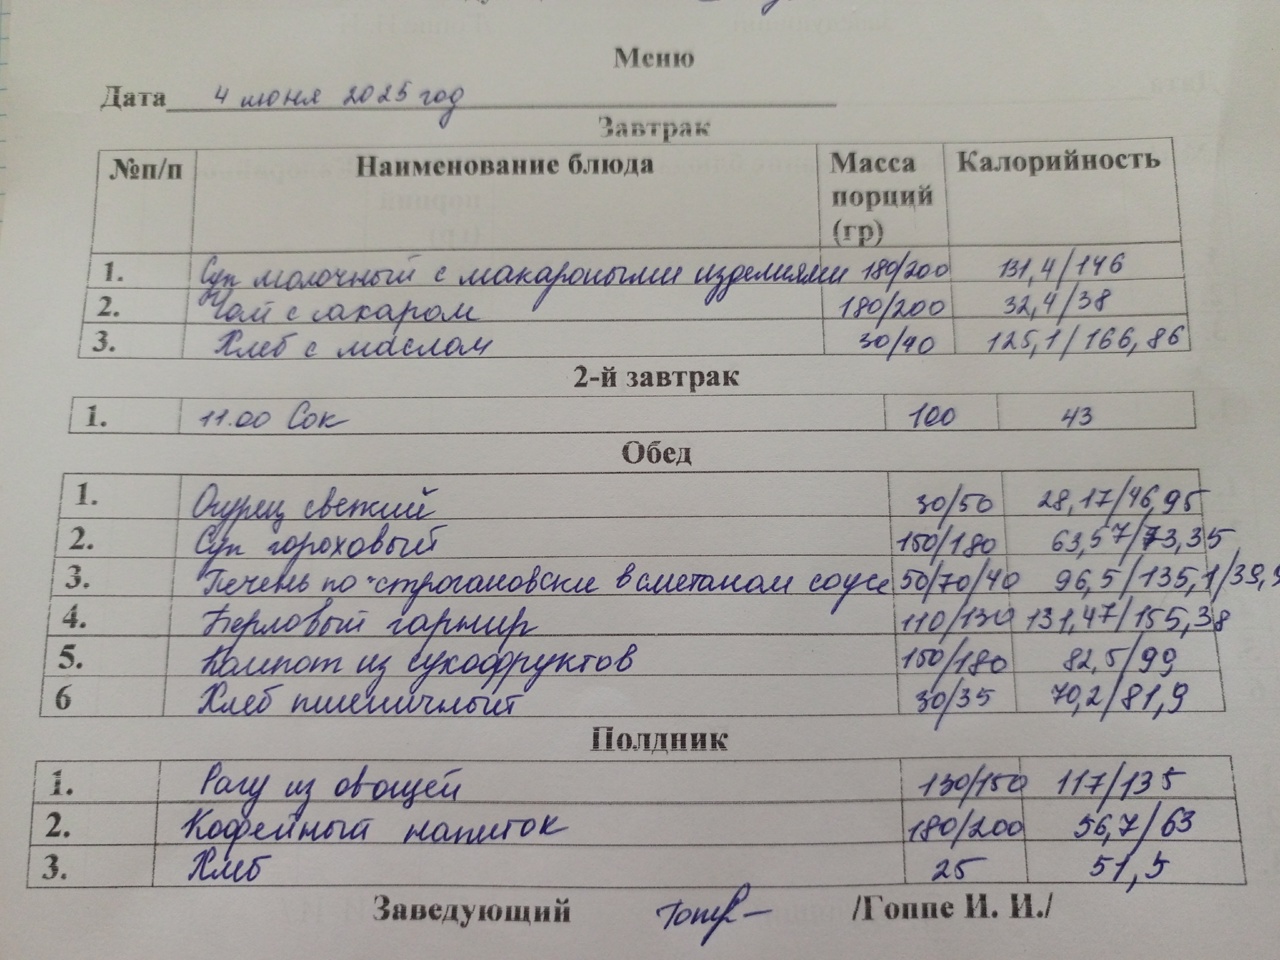 Меню
Дата 4 июня 2025 год
Завтрак
№п/п Наименование блюда Масса порций (гр) Калорийность
1. Суп молочный с макароными изделиями 180/200 131,4/146
2. Чай с сахаром 180/200 32,4/38
3. Хлеб с маслом 30/40 125,1/166,86
2-й завтрак
1. 11.00 Сок 100 43
Обед
1. Огурец свежий 30/50 28,17/46,95
2. Суп гороховый 150/180 63,57/73,35
3. Печень по-строгановски в сметаном соусе 50/70/40 96,5/135,1/39,9
4. Перловый гарнир 110/130 131,47/155,38
5. Компот из сухофруктов 150/180 82,5/99
6 Хлеб пшеничный 30/35 70,2/81,9
Полдник
1. Рагу из овощей 130/150 117/135
2. Кофейный напиток 180/200 56,7/63
3. Хлеб 25 51,5
Заведующий /Гоппе И. И./